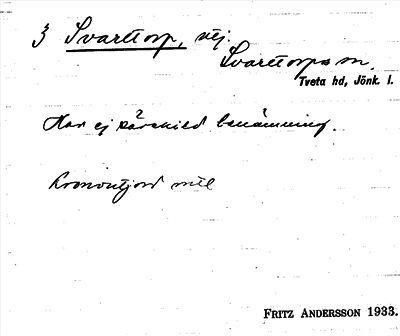 3 Svarttorp, vtj.
Svarttorps sn.
Tveta hd, Jönk. l.
Har ej särskild benämning.
FRITZ ANDERSSON 1933.